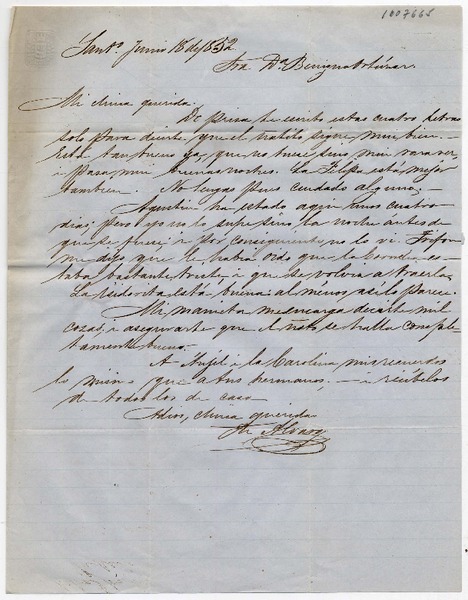 1007665
Sant.º Junio 18 de 1852
Sra Dª Benigna Ortúzar.
Mi china querida.
De prisa te escribo estas cuatro letras
solo para decirte que el ñatito sigue mui bien.
Está tan bueno ya, que no tose sino mui rara vez
i pasa mui buenas noches. La está mejor
tambien. No tengas pues cuidado alguno.
Agustin ha estado aquí unos cuatro
dias; pero yo no lo supe sino la noche ántes de
que se fuese, i por consiguiente no lo vi.
me dijo que le habia oido que la es-
taba bastante triste i que se volvia a traerla.
La Isidorita está buena: al ménos así lo parece.
Mi mamita me encarga decirte mil
cosas i asegurarte que el ñato se halla comple-
tamente bueno.
A Anjel i la Carolina mis recuerdos
lo mismo que a tus hermanos. — i recíbelos
de todos los de casa
Adios, china querida
Tu Alvaro